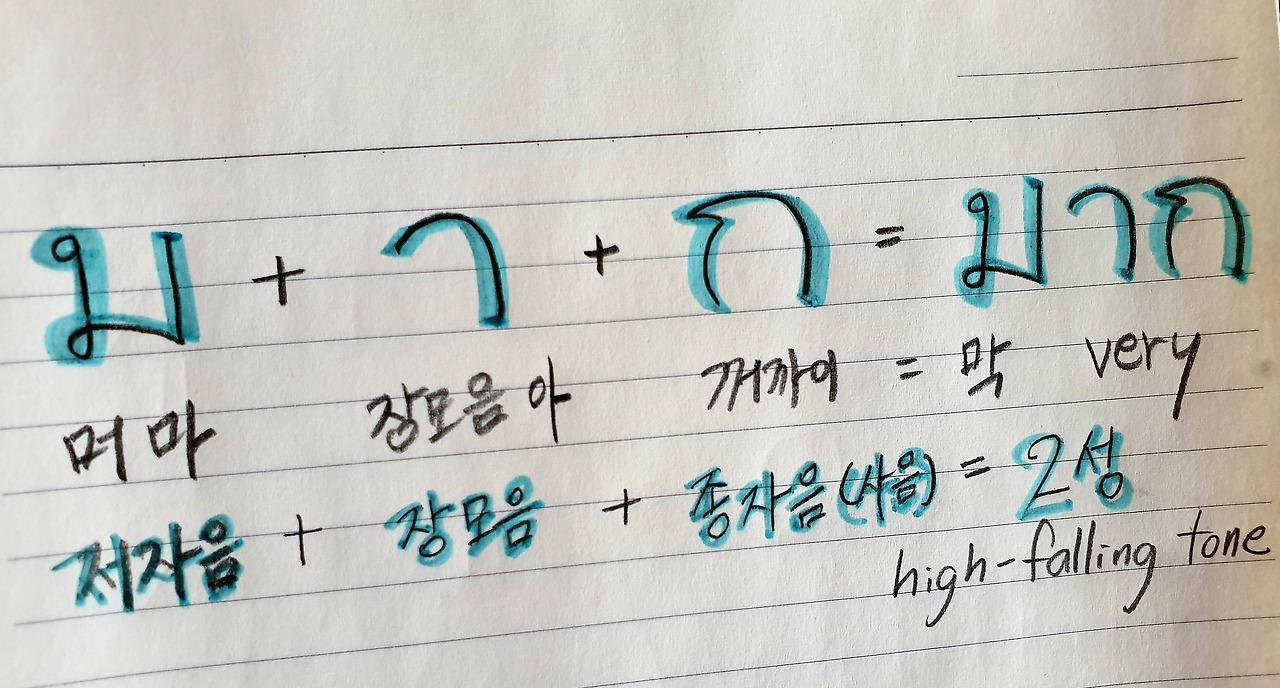 ม + า + ก = มาก
머 마 장모음 아 꺼까이 = 막 very
저자음 + 장모음 + 종자음(사음) = 2성
high-falling tone